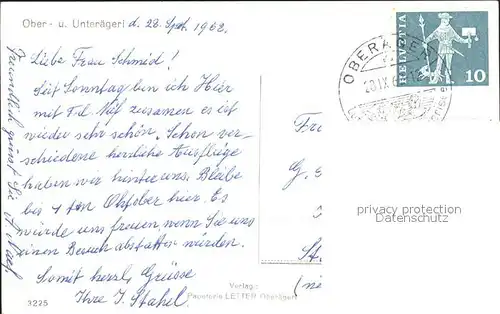 Ober- u. Unterägeri d. 28. Sept. 1962.
Liebe Frau Schmid!
Seit Sonntag bin ich Hier
mit Frl. Näf zusamen es ist
wieder sehr schön. Schon ver-
schiedene herrliche Ausflüge
haben wir hinter uns. Bleibe
bis 7 ten Oktober hier. Es
würde uns freuen wenn Sie uns
einen Besuch abstatten würden.
Somit herzl. Grüsse
Ihre J. Stahel.
Freundlich grüsst Sie
3225
Verlag:
Papeterie LETTER Oberägeri
HELVETIA
10
OBERÄ
28.IX.6
Fr
G.
St
(n
privacy protection
Datenschutz